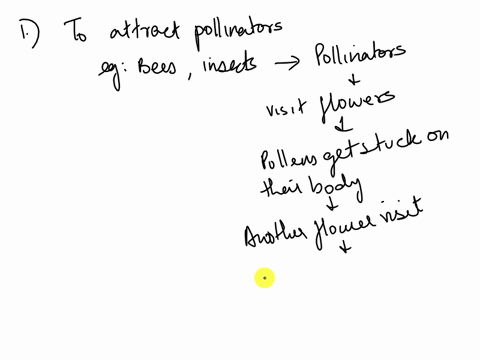 1.) To attract pollinators
eg: Bees, insects → Pollinators
↓
visit flowers
↓
Pollens get stuck on
their body
↓
Another flower visit
↓